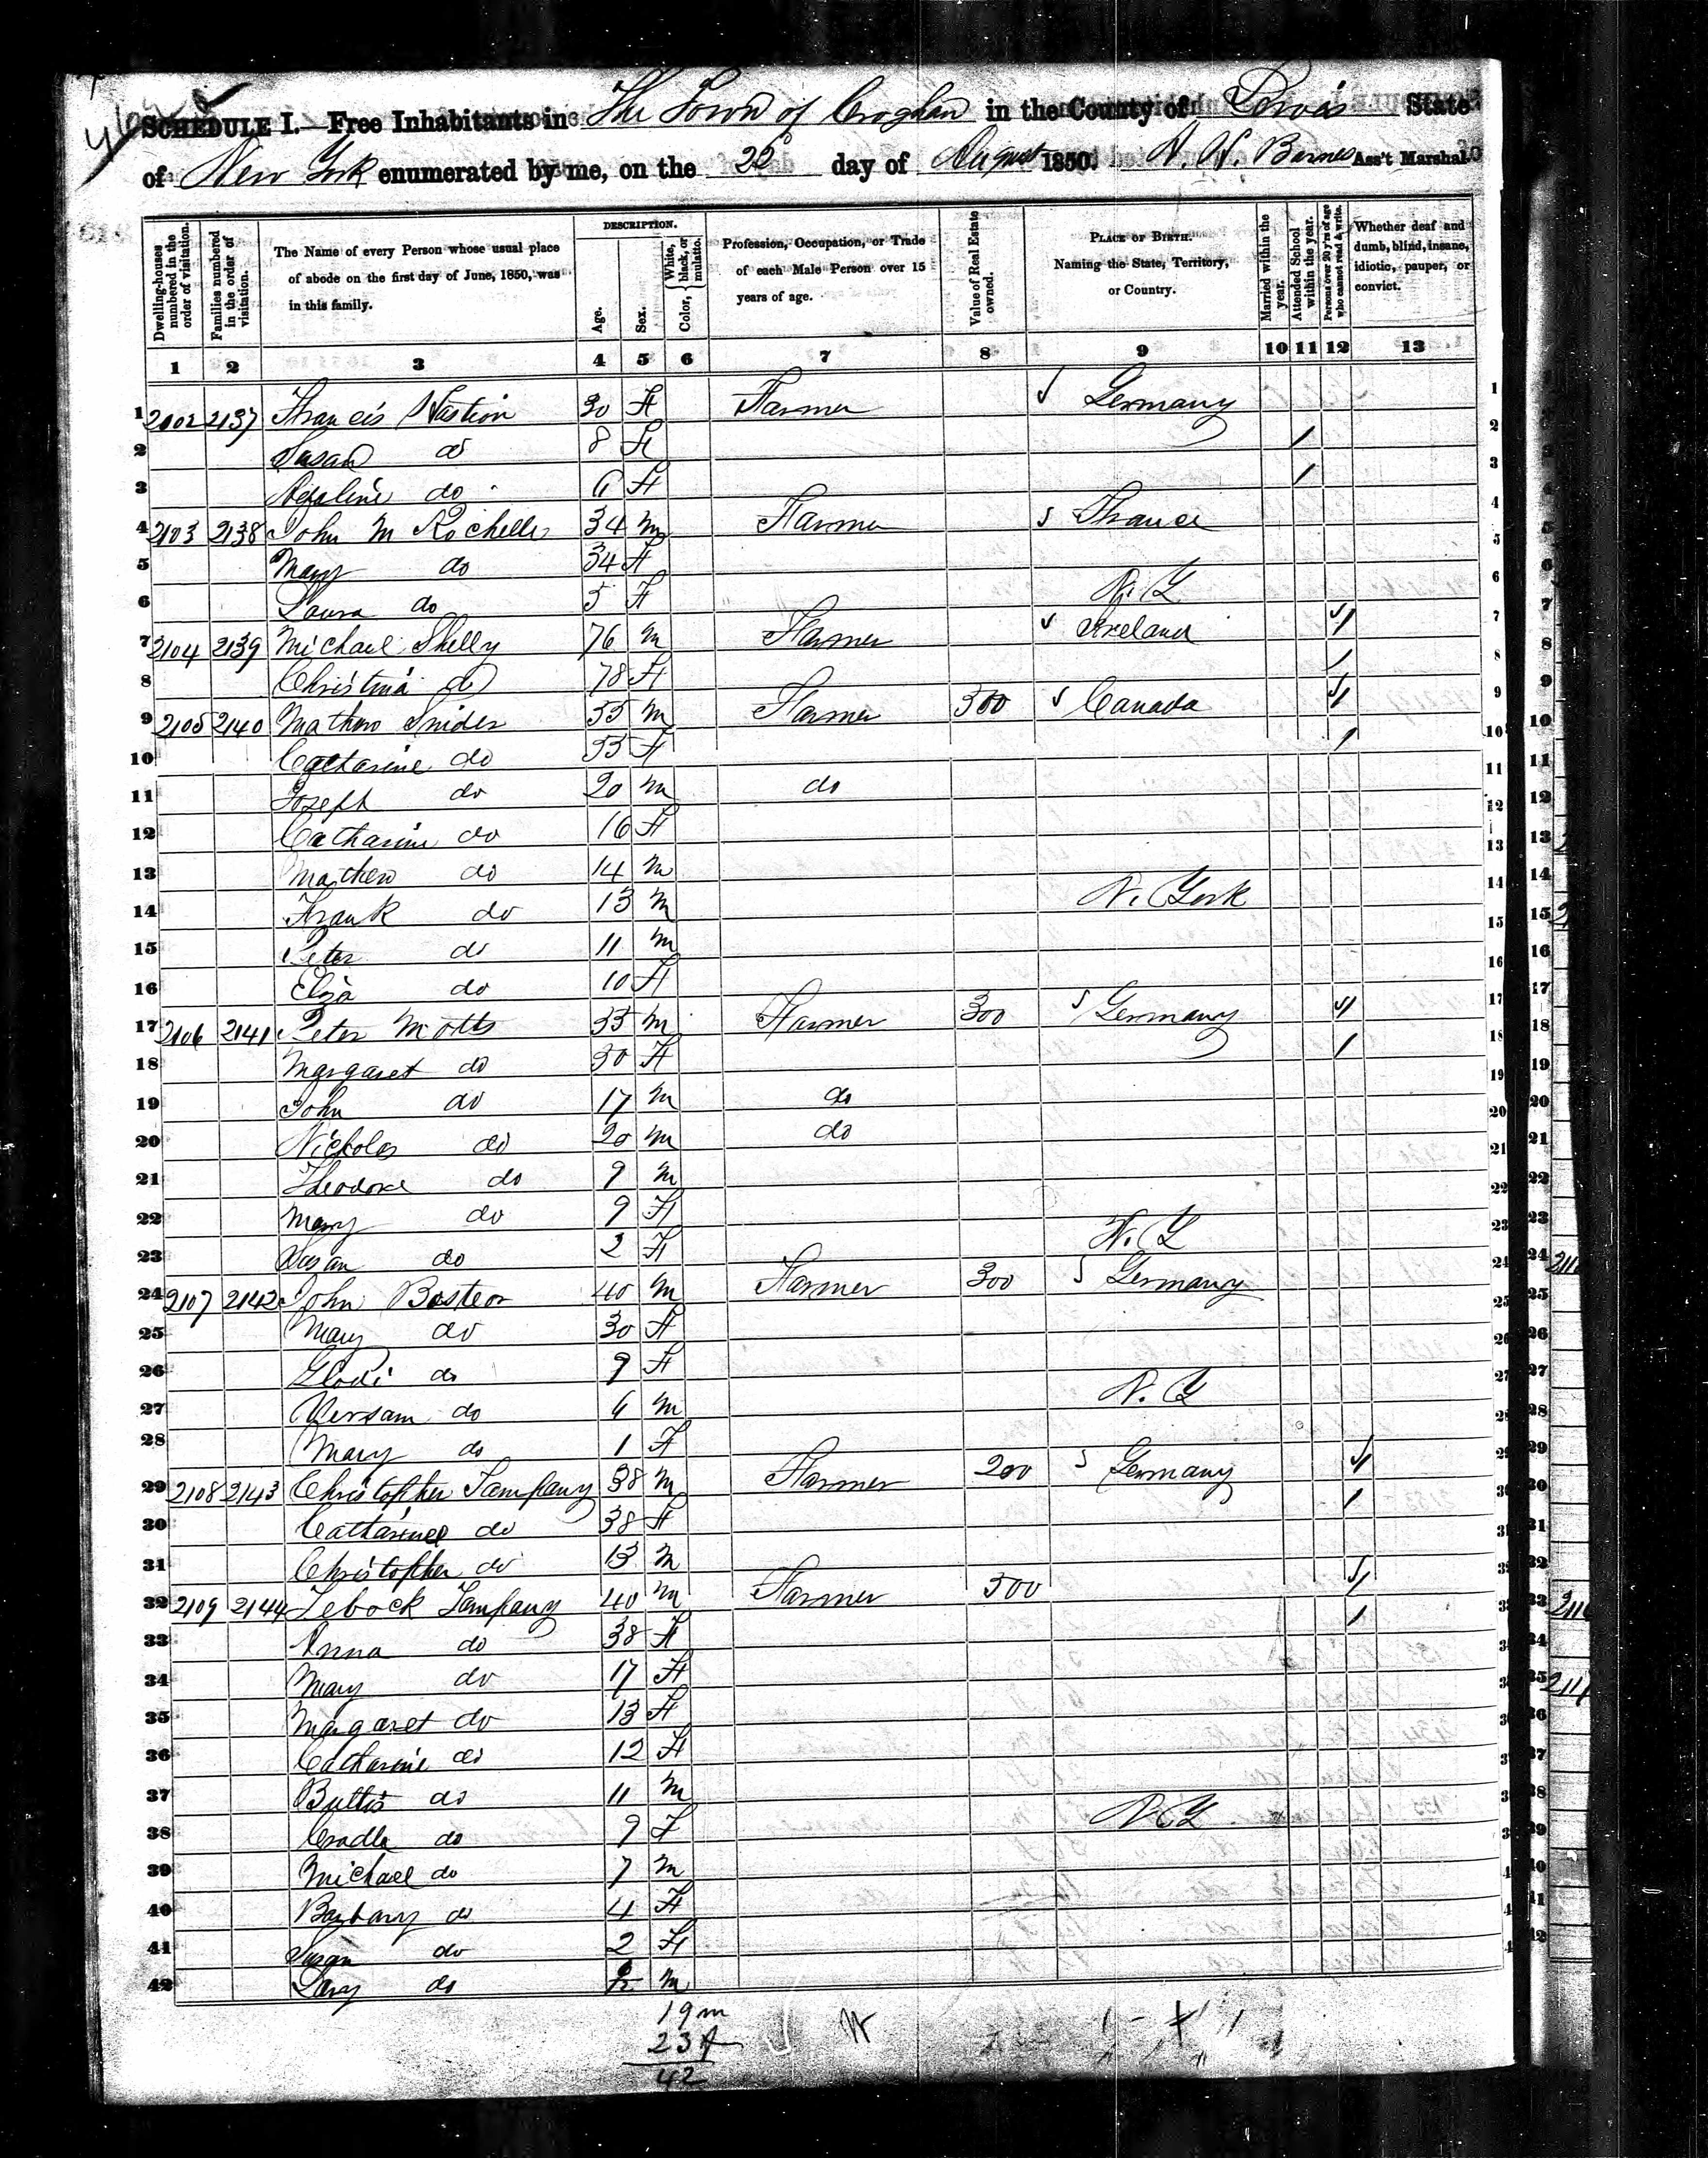 SCHEDULE I.—Free Inhabitants in The Town of Croghan in the County of Lewis State
of New York enumerated by me, on the 22 day of August 1850. Barnes Ass't Marshal.
Dwelling-houses numbered in the order of visitation.
Families numbered in the order of visitation.
The Name of every Person whose usual place of abode on the first day of June, 1850, was in this family.
DESCRIPTION.
Age.
Sex.
Color, { White, black, or mulatto.
Profession, Occupation, or Trade of each Male Person over 15 years of age.
Value of Real Estate owned.
PLACE OF BIRTH. Naming the State, Territory, or Country.
Married within the year.
Attended School within the year.
Persons over 20 y'rs of age who cannot read & write.
Whether deaf and dumb, blind, insane, idiotic, pauper, or convict.
1 2 3 4 5 6 7 8 9 10 11 12 13
1 2102 2137 Francis 30 F Farmer Germany
2 Susan do 8 F /
3 do 6 F /
4 2103 2138 John M Rochelle 34 M Farmer France
5 Mary do 34 F
6 Laura do 5 F N. Y
7 2104 2139 Michael Shelly 76 M Farmer Ireland /
8 Christina do 78 F /
9 2105 2140 Mathew Snider 55 M Farmer 300 Canada /
10 Catharine do 55 F /
11 Joseph do 20 M do
12 Catharine do 16 F
13 Mathew do 14 M
14 Frank do 13 M N. York
15 Peter do 11 M
16 Eliza do 10 F
17 2106 2141 Peter Motts 35 M Farmer 300 Germany /
18 Margaret do 30 F /
19 John do 17 M do
20 Nicholas do 20 M do
21 Theodore do 9 M
22 Mary do 9 F
23 Susan do 2 F N. Y
24 2107 2142 John Basteor 40 M Farmer 300 Germany
25 Mary do 30 F
26 do 9 F
27 Versam do 6 M N. Y
28 Mary do 1 F
29 2108 2143 Christopher Tampany 38 M Farmer 200 Germany /
30 Catharine do 38 F /
31 Christopher do 13 M
32 2109 2144 Jebock Tampany 40 M Farmer 500 /
33 Anna do 38 F /
34 Mary do 17 F
35 Margaret do 13 F
36 Catharine do 12 F
37 Buttis do 11 M
38 do 9 F N. Y
39 Michael do 7 M
40 Barbary do 4 F
41 Susan do 2 F
42 do M
19 m
23 F
42